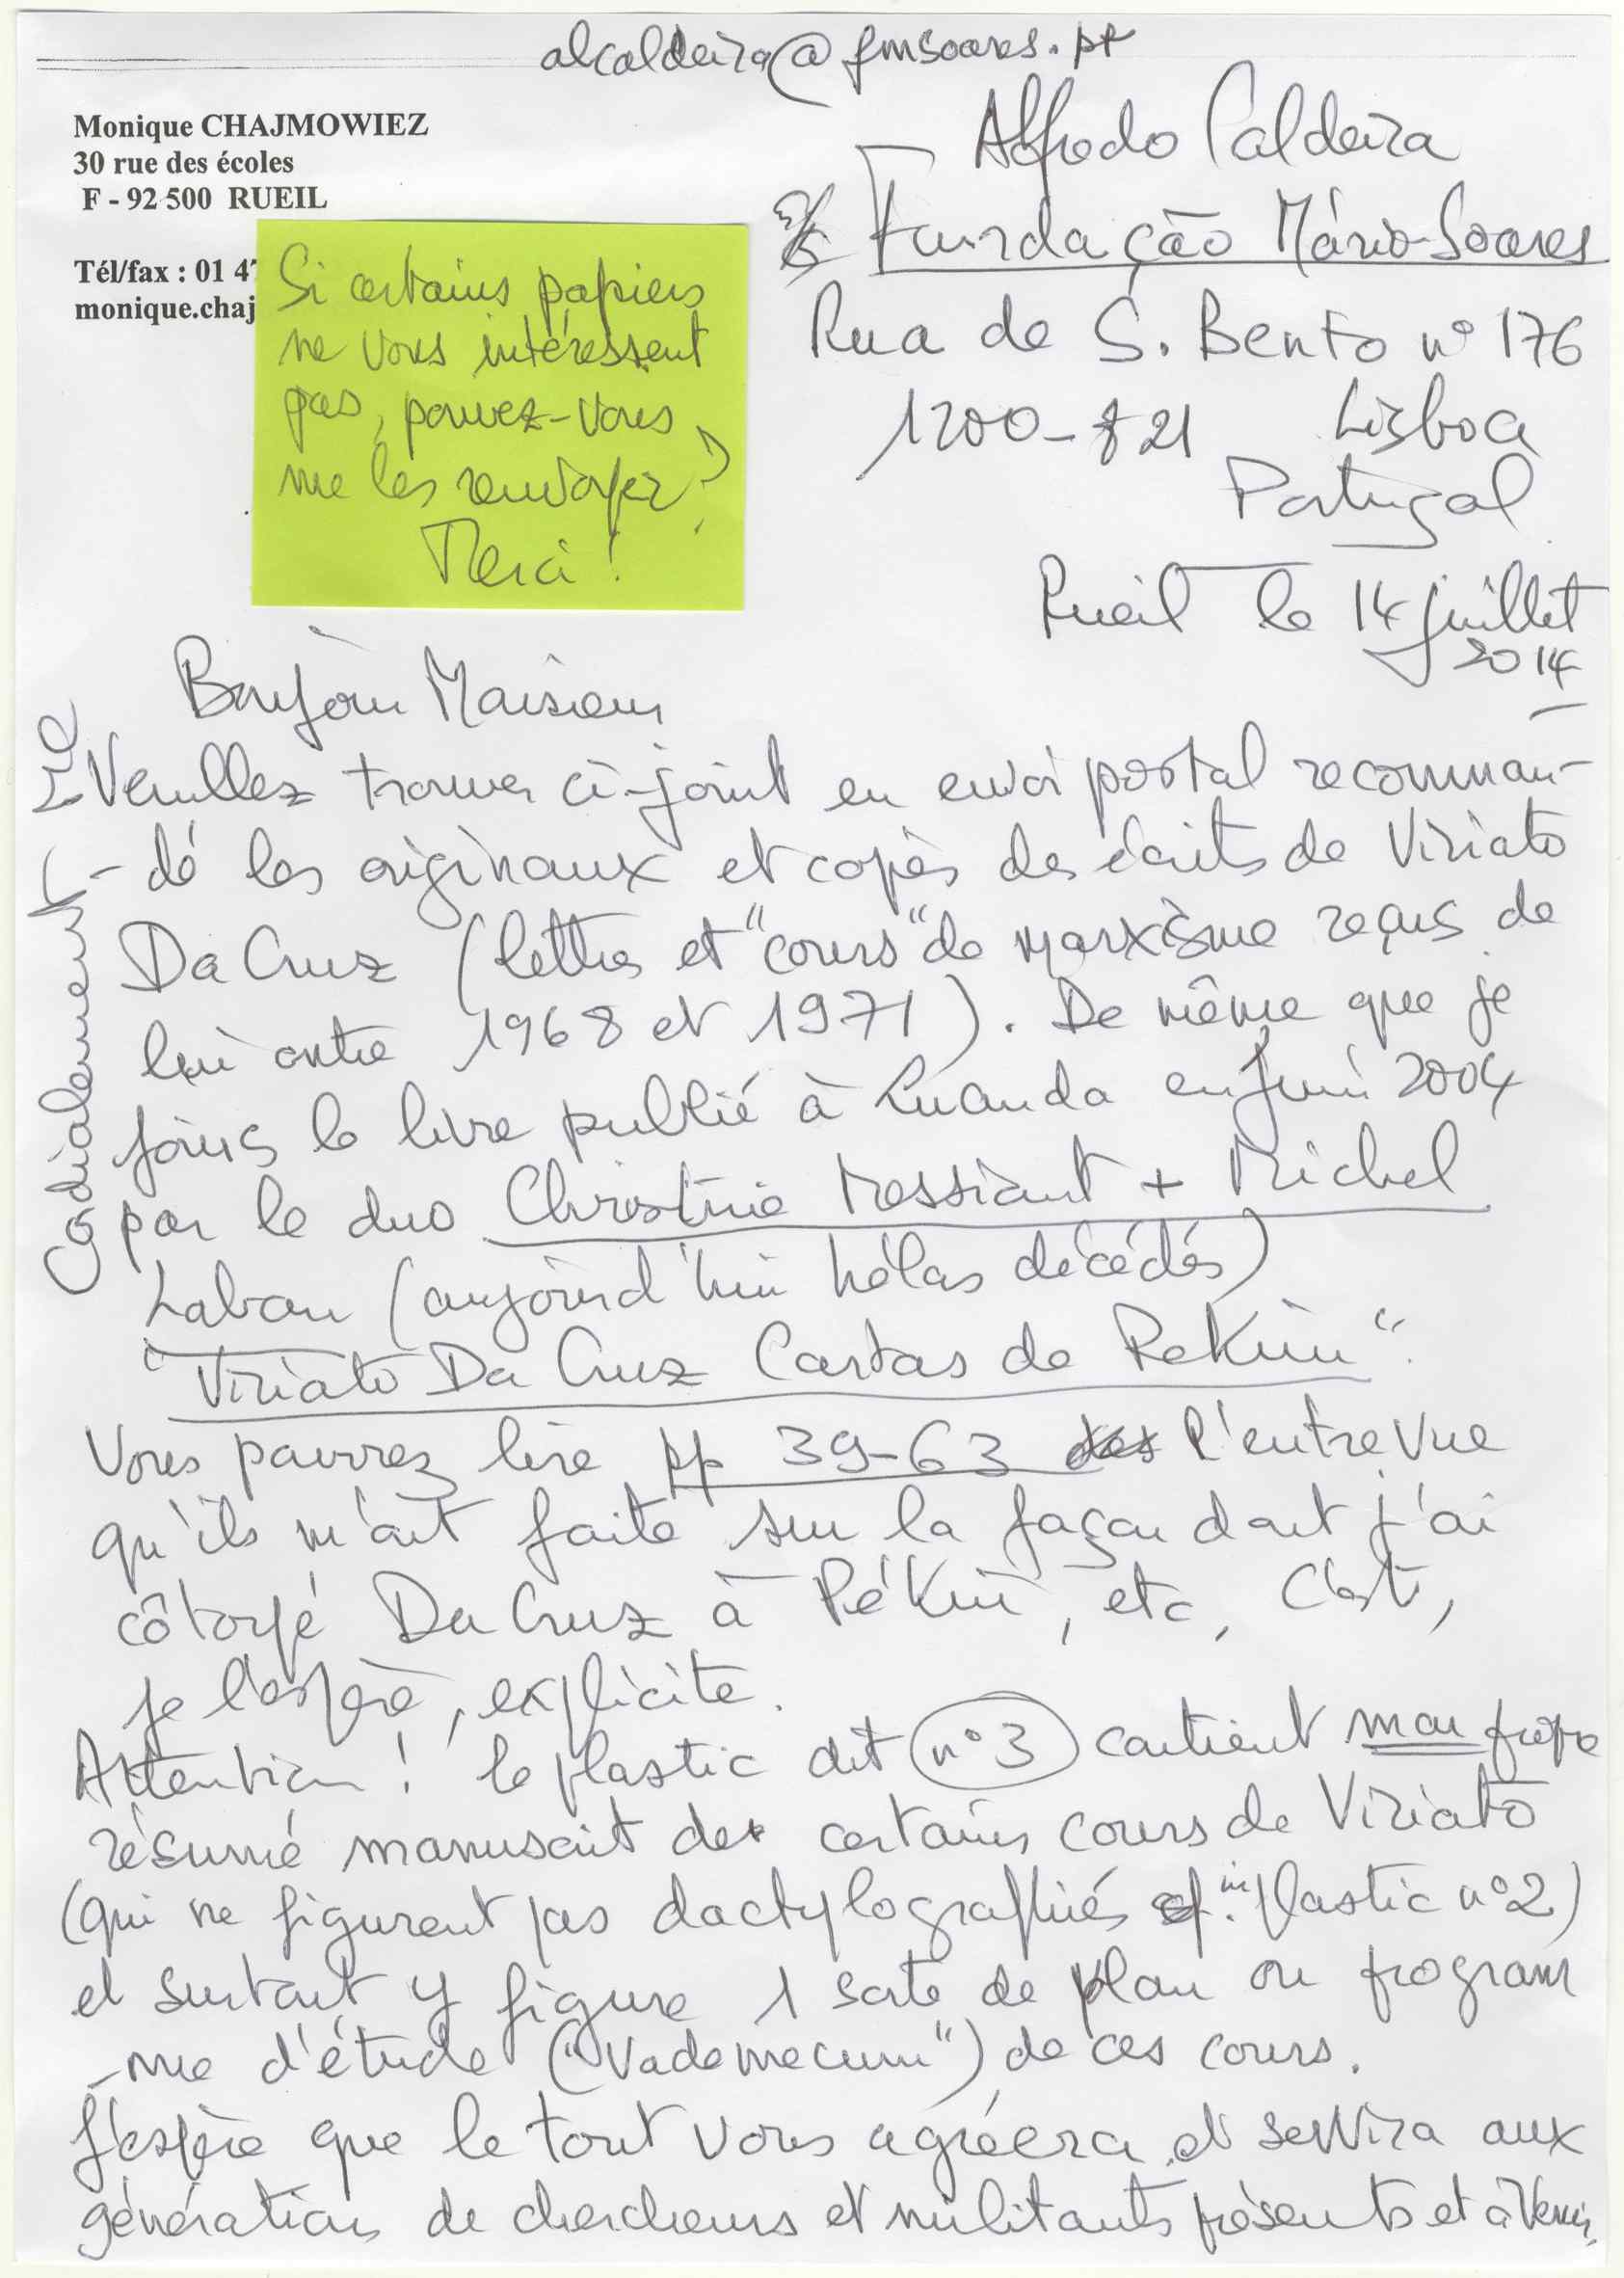 alcaldeira@fmsoares.pt
Monique CHAJMOWIEZ
30 rue des écoles
F - 92 500 RUEIL
Tél/fax : 01 47
monique.chaj
Si certains papiers
ne vous intéressent
pas, pouvez-vous
me les renvoyer?
Merci !
Alfredo Caldeira
Fundação Mário Soares
Rua de S. Bento nº 176
1200-821 Lisboa
Portugal
Rueil le 14 juillet
2014
Bonjour Monsieur
Veuillez trouver ci-joint en envoi postal recomman-
-dé les originaux et copies des écrits de Viriato
Da Cruz (lettres et "cours" de marxisme reçus de
lui entre 1968 et 1971). De même que je
joins le livre publié à Luanda en Juin 2004
par le duo Christine Messiant + Michel
Laban (aujourd'hui hélas décédés)
"Viriato Da Cruz Cartas de Pekin".
Vous pourrez lire pp 39-63 l'entrevue
qu'ils m'ont faite sur la façon dont j'ai
côtoyé Da Cruz à Pékin, etc, C'est,
je l'espère, explicite.
Attention ! le plastic dit n° 3 contient mon propre
résumé manuscrit de certains cours de Viriato
(qui ne figurent pas dactylographiés cf. in plastic n° 2)
et surtout y figure 1 sorte de plan ou program
-me d'étude ("Vademecum") de ces cours.
J'espère que le tout vous agréera et servira aux
générations de chercheurs et militants présents et à venir.
Cordialement